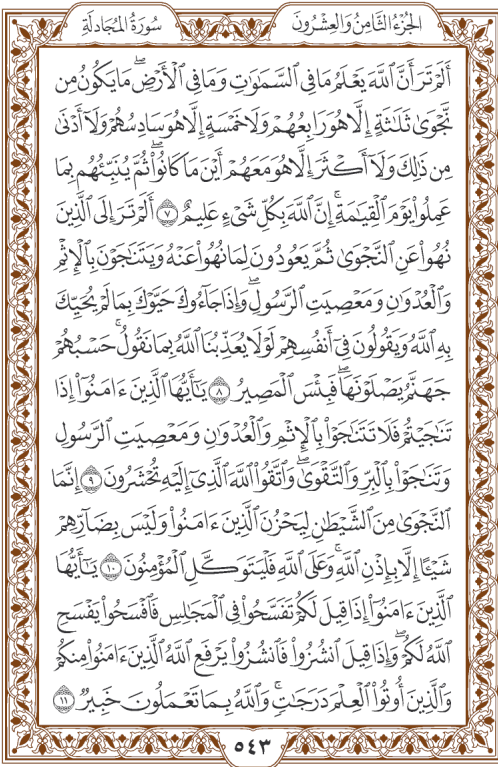 الجُزْءُ الثَّامِنُ وَالعِشْرُونَ
سُورَةُ المُجَادلَةِ
أَلَمْ تَرَ أَنَّ ٱللَّهَ يَعْلَمُ مَا فِي ٱلسَّمَٰوَٰتِ وَمَا فِي ٱلْأَرْضِۖ مَا يَكُونُ مِن
نَّجْوَىٰ ثَلَٰثَةٍ إِلَّا هُوَ رَابِعُهُمْ وَلَا خَمْسَةٍ إِلَّا هُوَ سَادِسُهُمْ وَلَآ أَدْنَىٰ
مِن ذَٰلِكَ وَلَآ أَكْثَرَ إِلَّا هُوَ مَعَهُمْ أَيْنَ مَا كَانُوا۟ۖ ثُمَّ يُنَبِّئُهُم بِمَا
عَمِلُوا۟ يَوْمَ ٱلْقِيَٰمَةِۚ إِنَّ ٱللَّهَ بِكُلِّ شَىْءٍ عَلِيمٌ ٧ أَلَمْ تَرَ إِلَى ٱلَّذِينَ
نُهُوا۟ عَنِ ٱلنَّجْوَىٰ ثُمَّ يَعُودُونَ لِمَا نُهُوا۟ عَنْهُ وَيَتَنَٰجَوْنَ بِٱلْإِثْمِ
وَٱلْعُدْوَٰنِ وَمَعْصِيَتِ ٱلرَّسُولِۖ وَإِذَا جَآءُوكَ حَيَّوْكَ بِمَا لَمْ يُحَيِّكَ
بِهِ ٱللَّهُ وَيَقُولُونَ فِىٓ أَنفُسِهِمْ لَوْلَا يُعَذِّبُنَا ٱللَّهُ بِمَا نَقُولُۚ حَسْبُهُمْ
جَهَنَّمُ يَصْلَوْنَهَاۖ فَبِئْسَ ٱلْمَصِيرُ ٨ يَٰٓأَيُّهَا ٱلَّذِينَ ءَامَنُوٓا۟ إِذَا
تَنَٰجَيْتُمْ فَلَا تَتَنَٰجَوْا۟ بِٱلْإِثْمِ وَٱلْعُدْوَٰنِ وَمَعْصِيَتِ ٱلرَّسُولِ
وَتَنَٰجَوْا۟ بِٱلْبِرِّ وَٱلتَّقْوَىٰۖ وَٱتَّقُوا۟ ٱللَّهَ ٱلَّذِىٓ إِلَيْهِ تُحْشَرُونَ ٩ إِنَّمَا
ٱلنَّجْوَىٰ مِنَ ٱلشَّيْطَٰنِ لِيَحْزُنَ ٱلَّذِينَ ءَامَنُوا۟ وَلَيْسَ بِضَآرِّهِمْ
شَيْـًٔا إِلَّا بِإِذْنِ ٱللَّهِۚ وَعَلَى ٱللَّهِ فَلْيَتَوَكَّلِ ٱلْمُؤْمِنُونَ ١٠ يَٰٓأَيُّهَا
ٱلَّذِينَ ءَامَنُوٓا۟ إِذَا قِيلَ لَكُمْ تَفَسَّحُوا۟ فِي ٱلْمَجَٰلِسِ فَٱفْسَحُوا۟ يَفْسَحِ
ٱللَّهُ لَكُمْۖ وَإِذَا قِيلَ ٱنشُزُوا۟ فَٱنشُزُوا۟ يَرْفَعِ ٱللَّهُ ٱلَّذِينَ ءَامَنُوا۟ مِنكُمْ
وَٱلَّذِينَ أُوتُوا۟ ٱلْعِلْمَ دَرَجَٰتٍۚ وَٱللَّهُ بِمَا تَعْمَلُونَ خَبِيرٌ ١١
٥٤٣